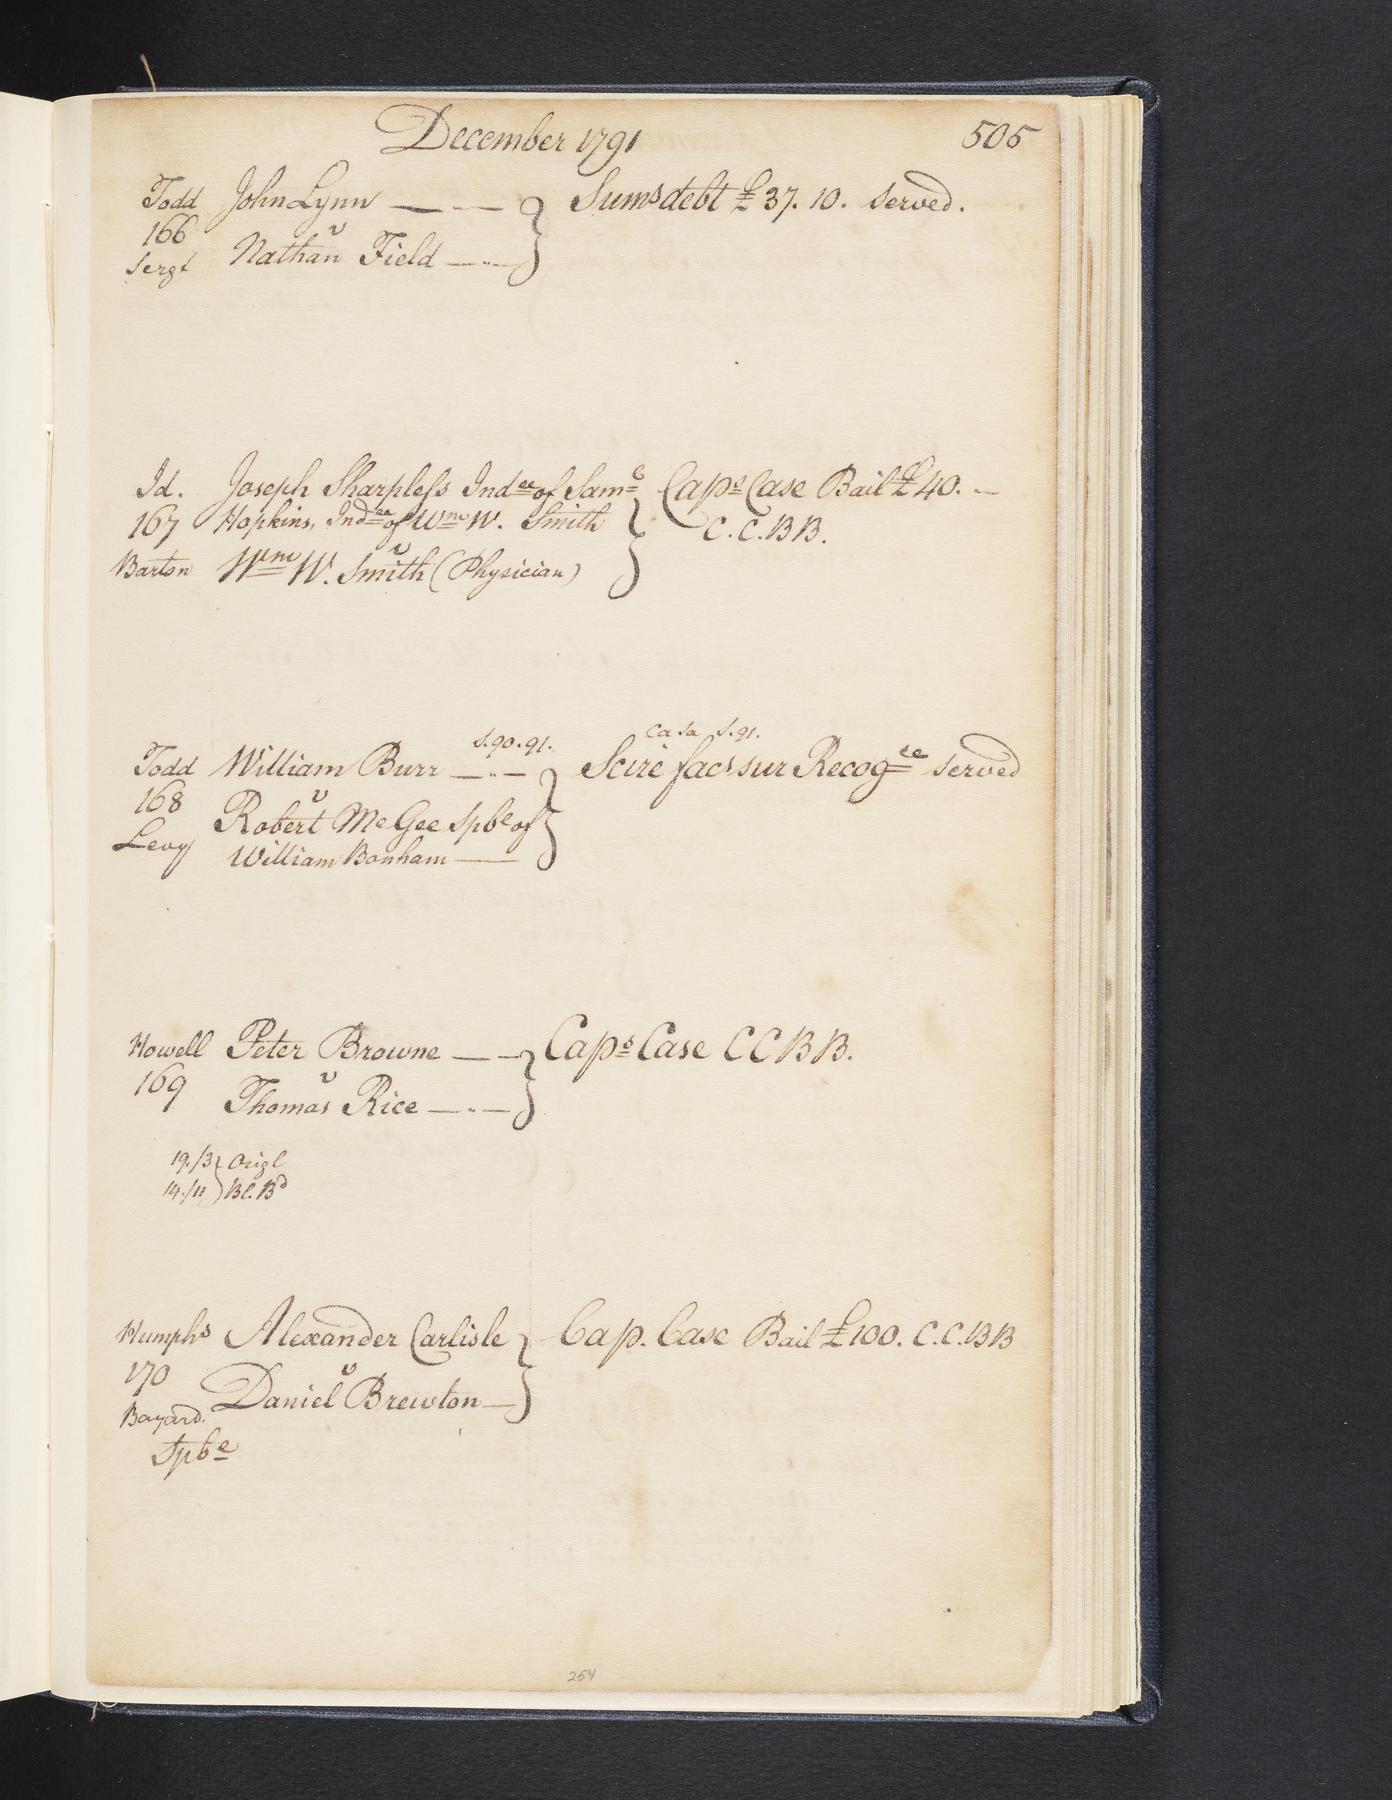 December 1791
505
Todd John Lynn — Sums debt £37. 10. served.
166 v
Sergt Nathan Field —
Id. Joseph Sharpless Indee of Saml Caps Case Bail £40. —
167 Hopkins, Indee of Wm W. Smith C. C. B B.
v
Barton Wm W. Smith (Physician)
S. 90. 91. Ca Sa S. 91.
Todd William Burr — Scire facs sur Recogce served
168 v
Robert McGee Spbe of
Levy William Bonham —
Howell Peter Browne — Caps Case C C B B.
169 v
Thomas Rice —
19./3 Origl
14./11 Bl. Bd
Humphs Alexander Carlisle Cap. Case Bail £100. C. C. B B
170 v
Bayard. Daniel Brewton —
Spbe
254